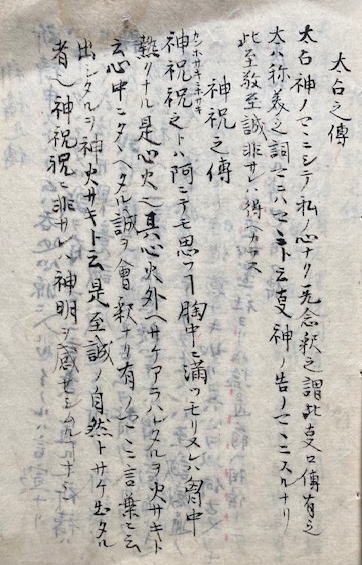 太占之傳
太占神ノマヽニシテ私ノ心ナク一毛念釈之謂此支口傳有之
太ハ称美之詞マニハマコトニ云支神ノ告ノマヽニスルナリ
此至敬至誠非サハ得ヘカラス
神祝之傳
カンホサキホサキ
神祝祝之トハ阿ニテモ思フ丁胸中ニ満ツモリヌレハ胸中
熱クナル是心火也其心火外ヘサケアラハレタルヲ火サキト
云心中ニタヘタル誠ヲ會釈ナリ有ノマヽニ言葉ニ云
出シタルヲ神火サキト云是至誠ノ自然トサケ出タル
者也神祝祝ニ非サレハ神明ヲ感セシムル